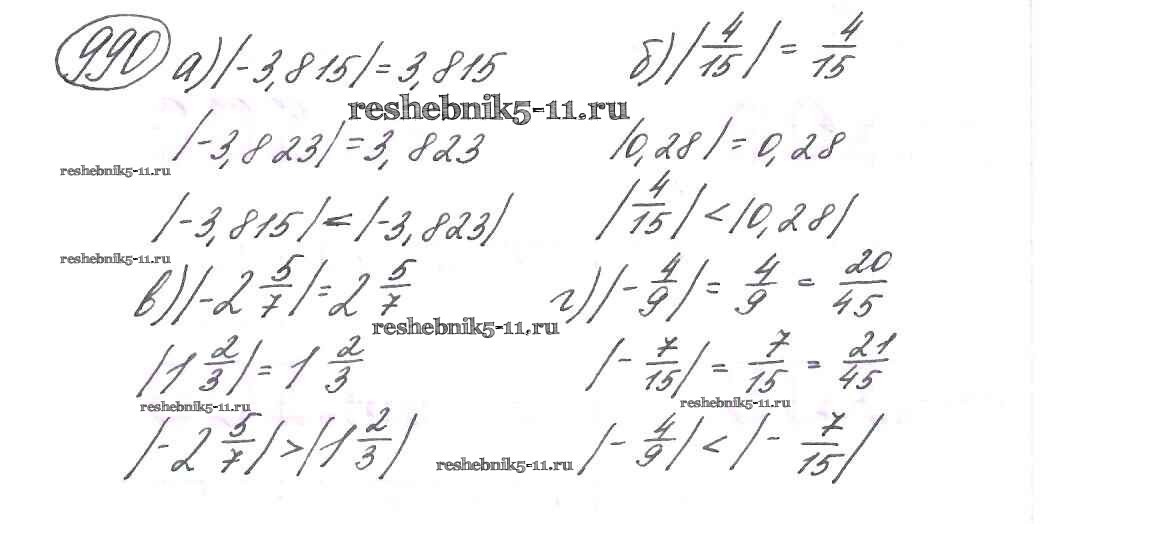 990 а) |-3,815| = 3,815
б) |4/15| = 4/15
reshebnik5-11.ru
|-3,823| = 3,823
|0,28| = 0,28
reshebnik5-11.ru
|-3,815| < |-3,823|
|4/15| < |0,28|
reshebnik5-11.ru
в) |-2 5/7| = 2 5/7
г) |-4/9| = 4/9 = 20/45
reshebnik5-11.ru
|1 2/3| = 1 2/3
|-7/15| = 7/15 = 21/45
reshebnik5-11.ru
reshebnik5-11.ru
|-2 5/7| > |1 2/3|
|-4/9| < |-7/15|
reshebnik5-11.ru